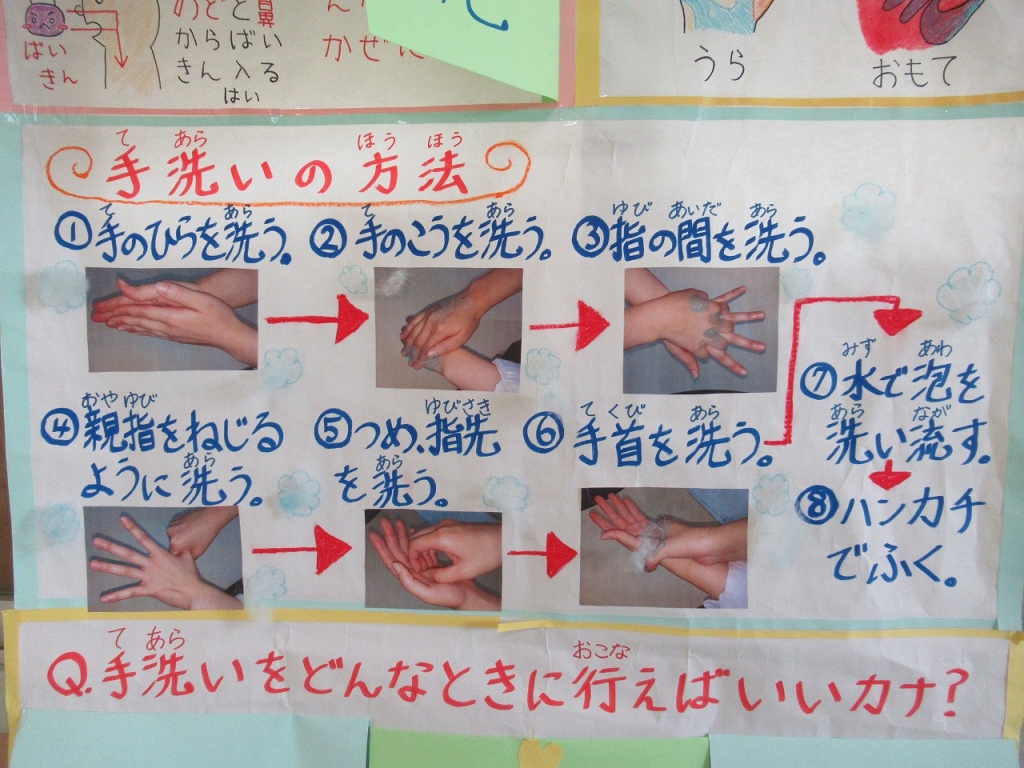 ばい
きん
のど と 鼻
からばい
きん入る
はい
かぜに
うら
おもて
て あら ほう ほう
手洗いの方法
て あら
①手のひらを洗う。
て あら
②手のこうを洗う。
ゆび あいだ あら
③指の間を洗う。
おや ゆび
④親指をねじる
あら
ように洗う。
ゆびさき
⑤つめ、指先
あら
を洗う。
て くび あら
⑥手首を洗う。
みず あわ
⑦水で泡を
あら なが
洗い流す。
⑧ハンカチ
でふく。
て あら おこな
Q.手洗いをどんなときに行えばいいカナ?